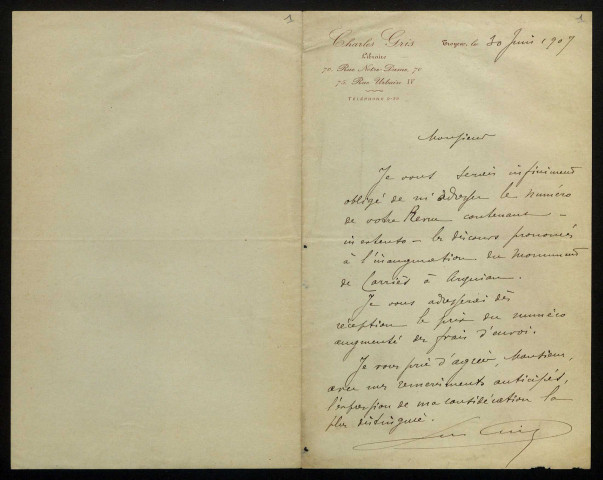 1
1
Charles Gris
Libraire
70. Rue Notre-Dame. 70
75. Rue Urbain IV
TÉLÉPHONE
Troyes, le 30 Juin 1907
Monsieur
Je vous serais infiniment
obligé de m'adresser le numéro
de votre Revue contenant -
in extenso - les discours prononcés
à l'inauguration du Monument
de Carriès à Arquian.
Je vous adresserai dès
réception le prix du numéro
augmenté des frais d'envoi.
Je vous prie d'agréer, Monsieur,
avec mes remerciments anticipés,
l'expression de ma considération la
plus distinguée.